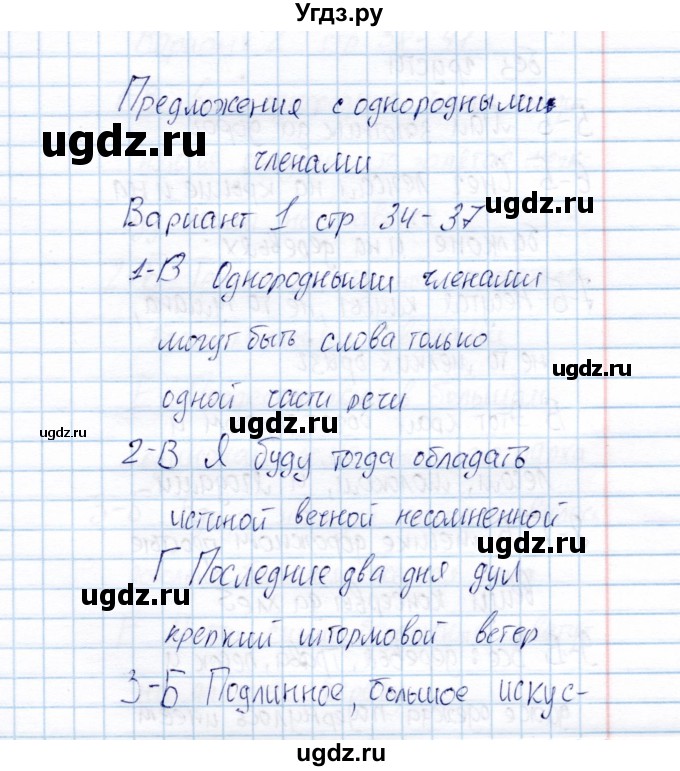 Угдз.ру
Предложения с однородными
ugdz.ru
членами
ugdz.ru
Вариант 1 стр 34-37
1-В Однородными членами
могут быть слова только
ugdz.ru
одной части речи
ugdz.ru
ugdz.ru
2-В Я буду тогда обладать
истиной вечной несомненной
ugdz.ru
Г Последние два дня дул
ugdz.ru
крепкий штормовой ветер
3-Б Подлинное, большое искус-
ugdz.ru